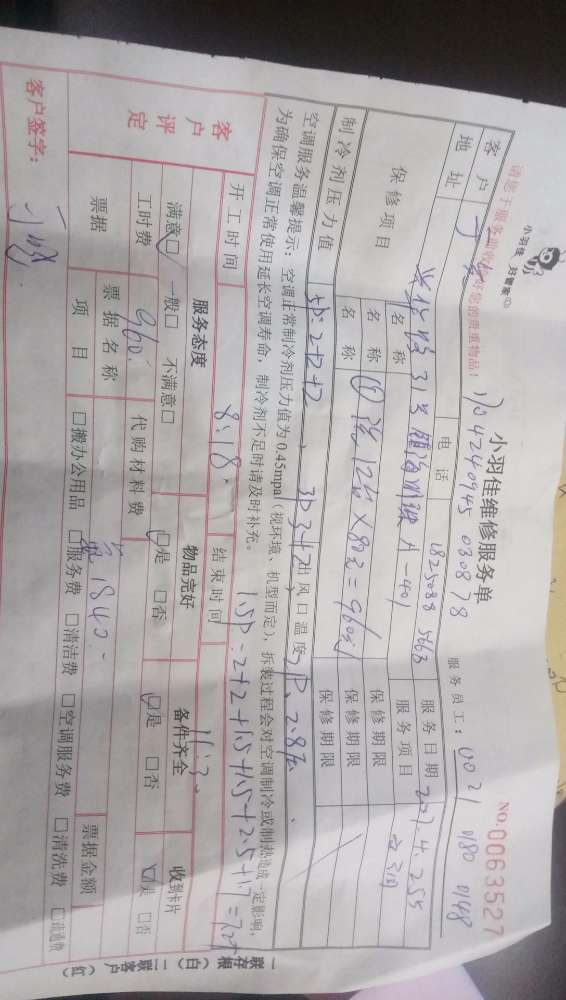 小羽佳 好管家
请您于服务前收好您的贵重物品!
小羽佳维修服务单
NO.0063527
服务员工:
客户
电话
服务日期
地址
31号
A-401
服务项目
保修项目
名称
保修期限
名称
12台×80元=960元
保修期限
名称
保修期限
制冷剂压力值
5P:2+2+2 3P3+2
出风口温度
2P、2.8
空调服务温馨提示:空调正常制冷剂压力值为0.45mpa(视环境、机型而定),拆装过程会对空调制冷或制热造成一定影响,
为确保空调正常使用延长空调寿命,制冷剂不足时请及时补充。
1.5P:2+2+1.5+1.5+2.5+1.7=
开工时间
8:18
结束时间
客户评定
服务态度
物品完好
备件齐全
收到卡片
满意□ 一般□ 不满意□
□是 □否
□是 □否
□是 □否
工时费
960
代购材料费
票据
票据名称
1840
票据金额
项目
□搬办公用品 □服务费 □清洁费 □空调服务费 □清洗费 □疏通费
客户签字:
一联存根(白)二联客户(红)